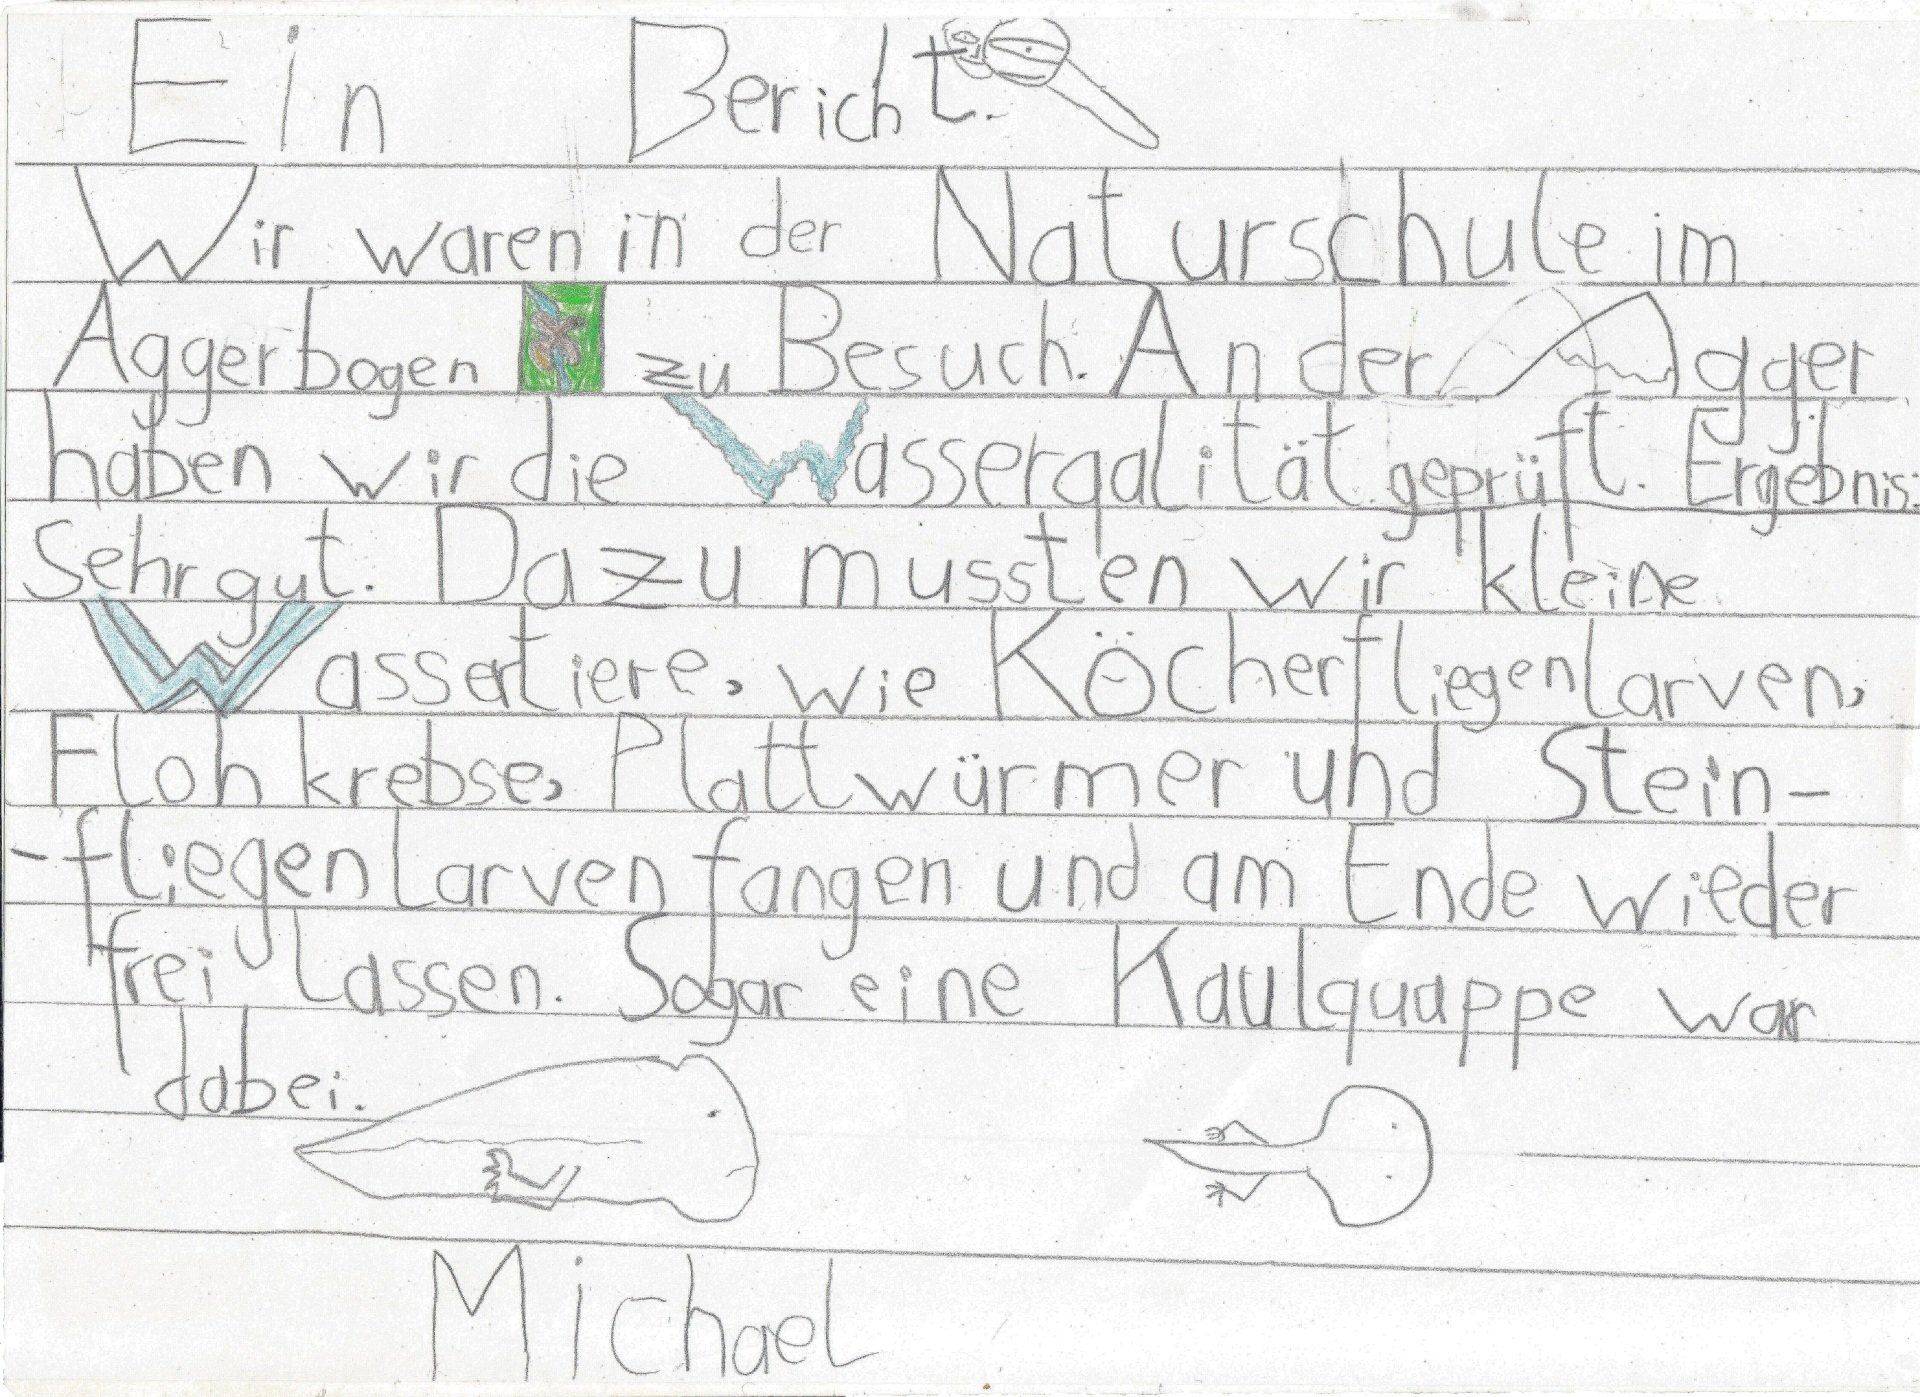 Ein Bericht.
Wir waren in der Naturschule im
Aggerbogen zu Besuch. An der Agger
haben wir die Wasserqalität geprüft. Ergebnis:
Sehr gut. Dazu mussten wir kleine
Wassertiere, wie Köcherfliegenlarven,
Flohkrebse, Plattwürmer und Stein-
-fliegenlarven fangen und am Ende wieder
frei lassen. Sogar eine Kaulquappe war
dabei.
Michael